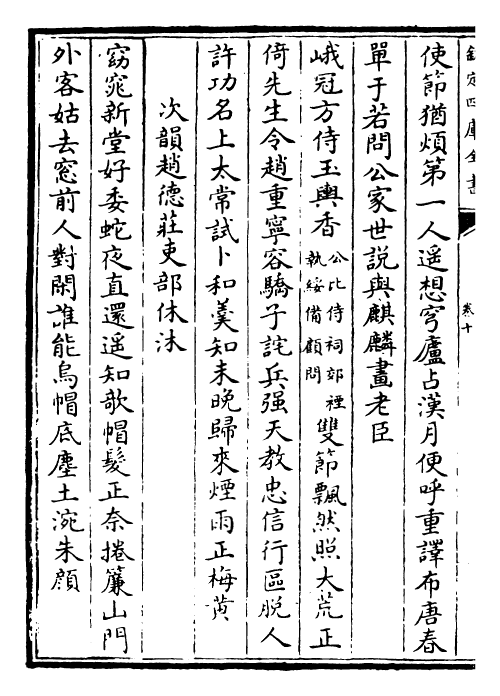 欽定四庫全書
卷十
使節猶煩第一人遥想穹廬占漢月便呼重譯布唐春
單于若問公家世説與麒麟畫老臣
峨冠方侍玉輿香公比侍祠郊禋執綏備顧問雙節飄然照大荒正
倚先生令趙重寧容驕子詫兵强天教忠信行區脱人
許功名上太常試卜和羮知未晚歸來煙雨正梅黄
次韻趙德莊吏部休沐
窈窕新堂好委蛇夜直還遥知歌帽髮正奈捲簾山門
外客姑去窓前人對閑誰能烏帽底塵土涴朱顔